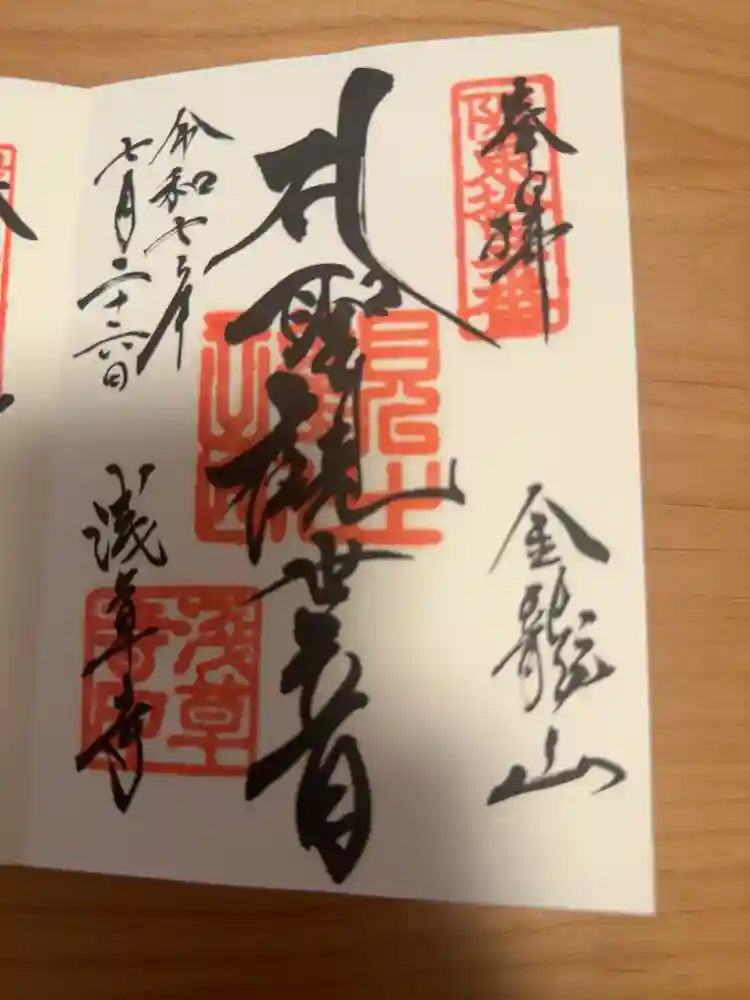 奉拝
金龍山
聖観世音
令和七年
七月二十六日
浅草寺
浅草
寺印